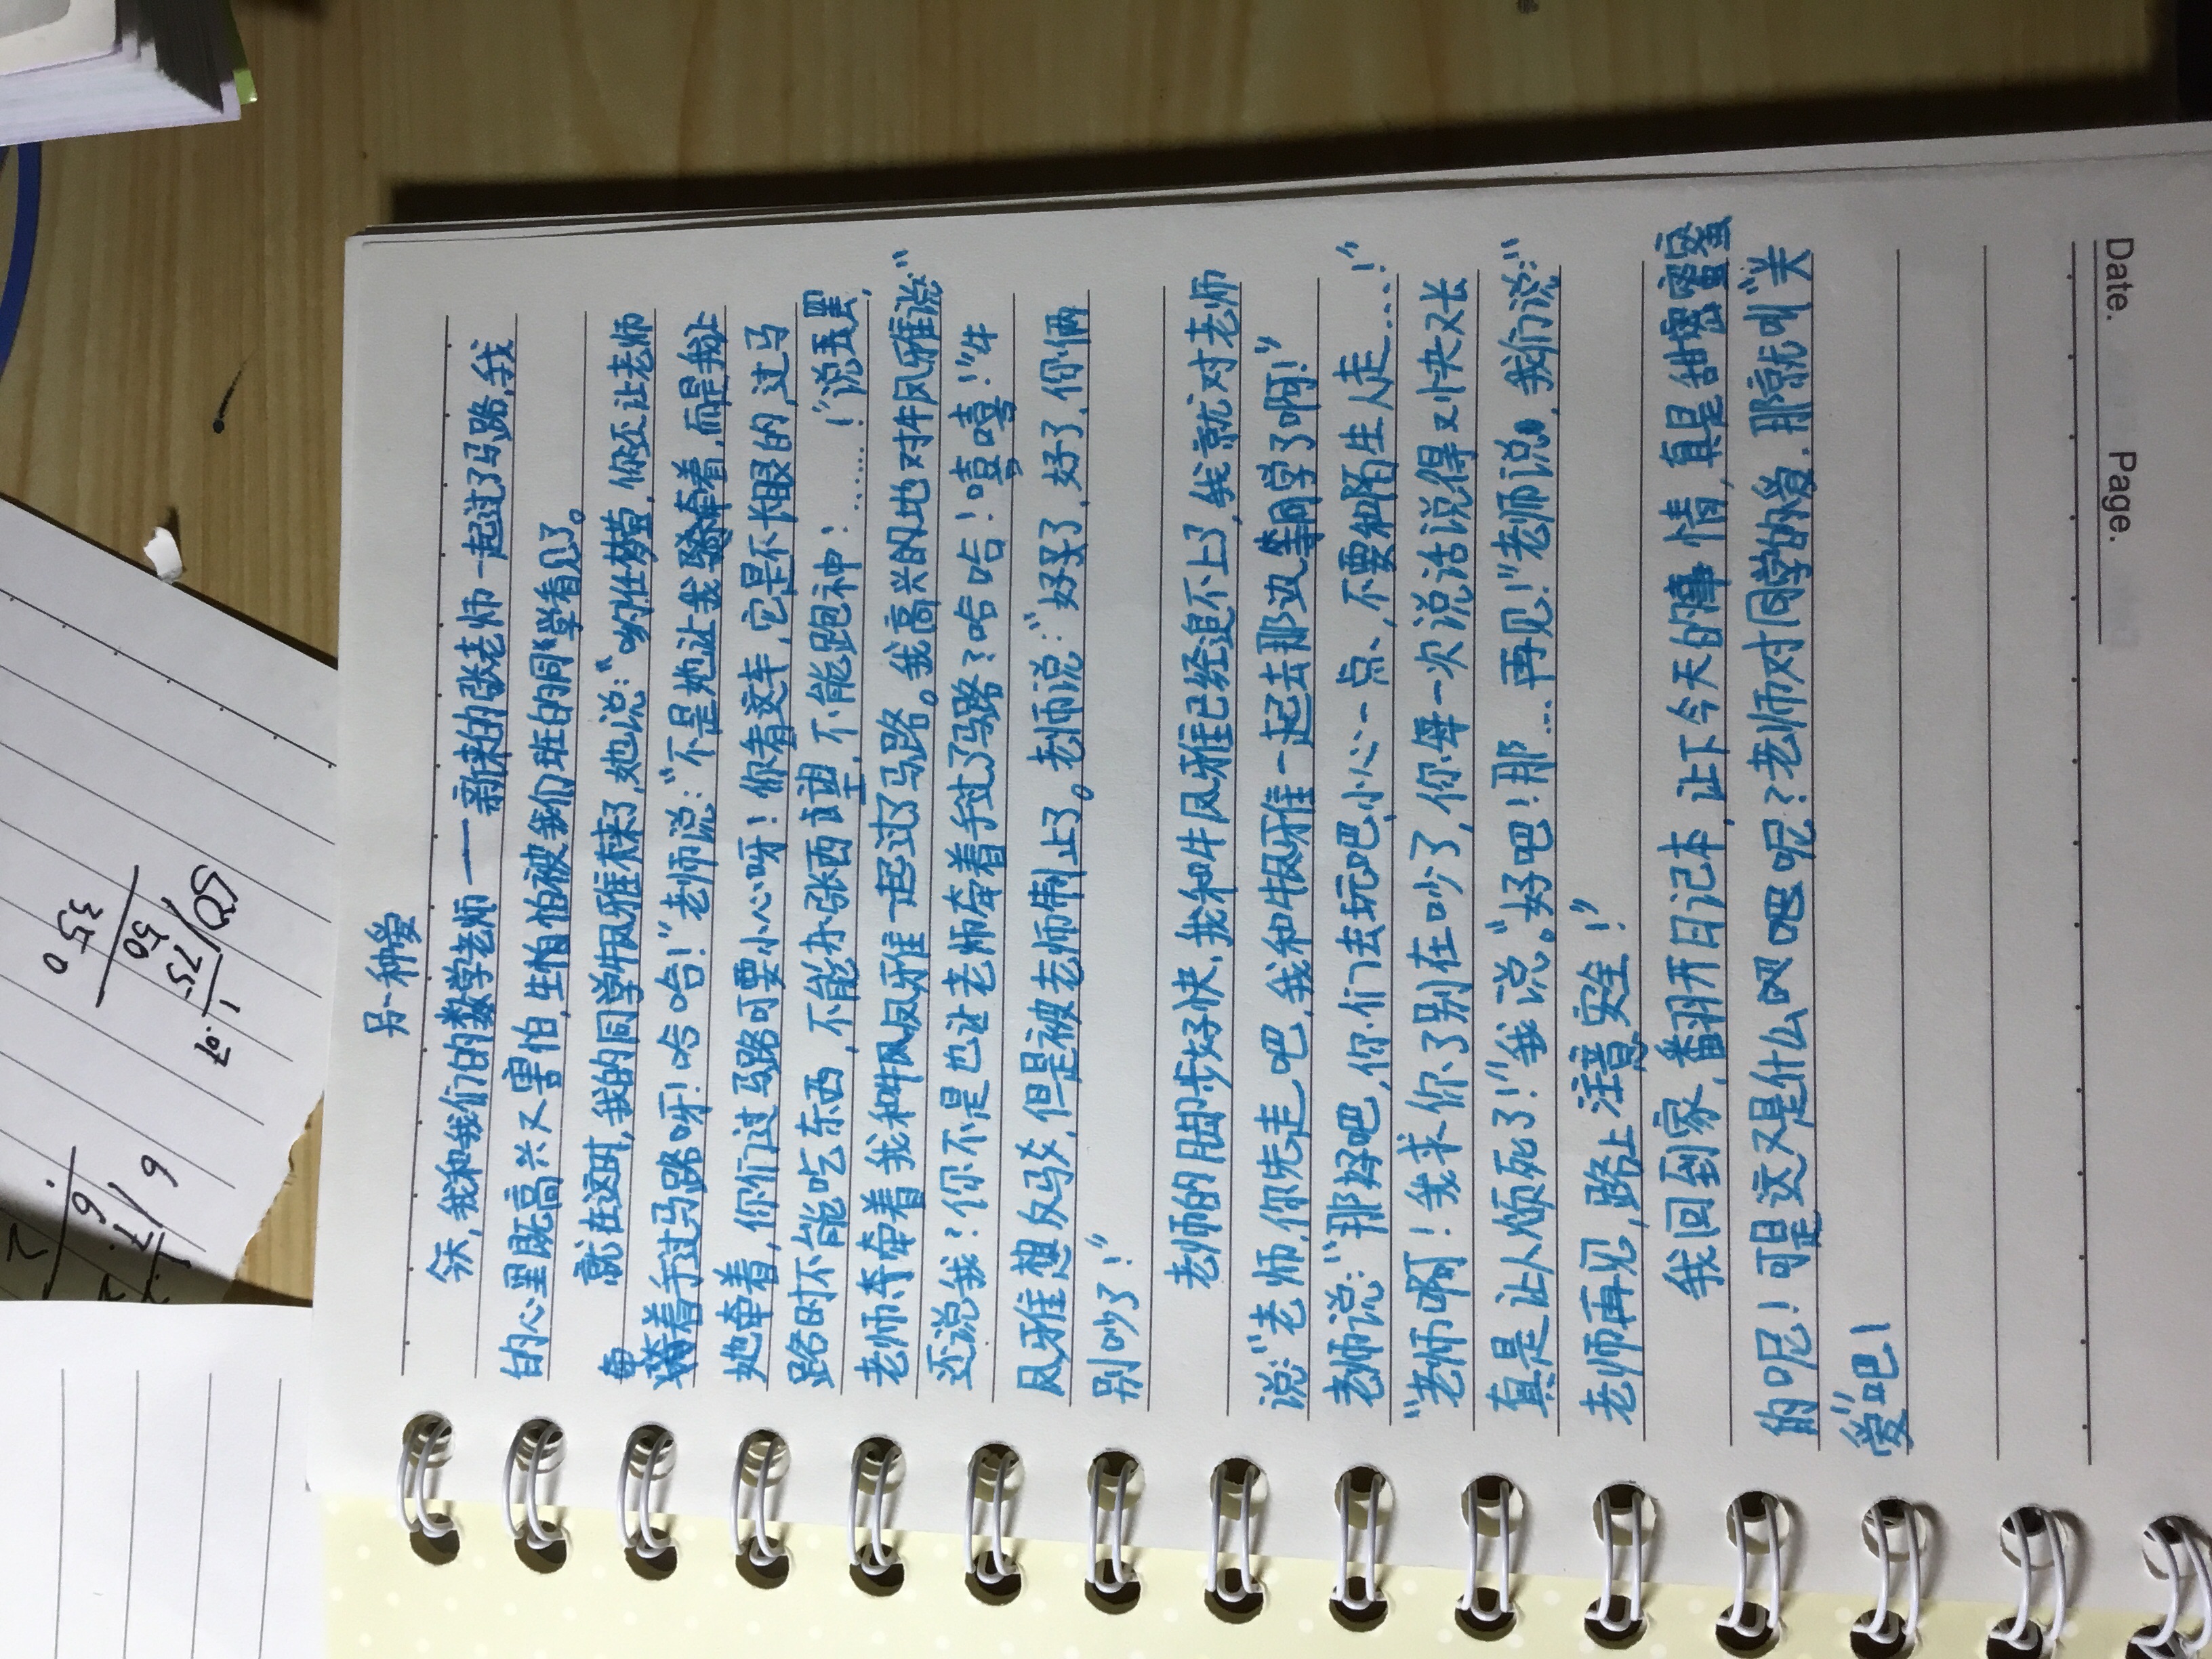 另一种爱
今天,我和我们的数学老师——新来的张老师一起过了马路,我
的心里既高兴又害怕,生怕怕被我们班的同学看见了。
就在这时,我的同学牛凤雅来了,她说:“哟,任梦莹,你还让老师
牵着手过马路呀!哈哈!”老师说:“不是她让我牵着,而是我让
她牵着,你们过马路可要小心呀!你看这车,它是不长眼的,过马
路时不能吃东西,不能东张西望,不能跑神!……!”说罢,
老师牵着我和牛凤雅一起过了马路。我高兴的地对牛凤雅说:“
还说我?你不是也让老师牵着手过了马路?哈哈!嘻嘻!”牛
凤雅想反驳,但是被老师制止了。老师说:“好了,好了,你俩
别吵了!”
老师的脚步好快,我和牛凤雅已经追不上了,我就对老师
说:“老师,你先走吧,我和牛凤雅一起去那边等同学了啊!”
老师说:“那好吧,你们去玩吧,小心一点,不要和陌生人走……!”
“老师啊!我求你了别在吵了,你每一次说话说得又快又长
真是让人烦死了!”我说。“好吧!那…再见!”老师说,我们说:“
老师再见,路上注意安全!”
我回到家,翻开日记本,记下今天的事情,真是甜蜜蜜
的呢!可是这又是什么呢?老师对同学的爱,那就叫“关
爱”吧!
Date.
Page.
50/75
50
35
0
6/7.
6.
2